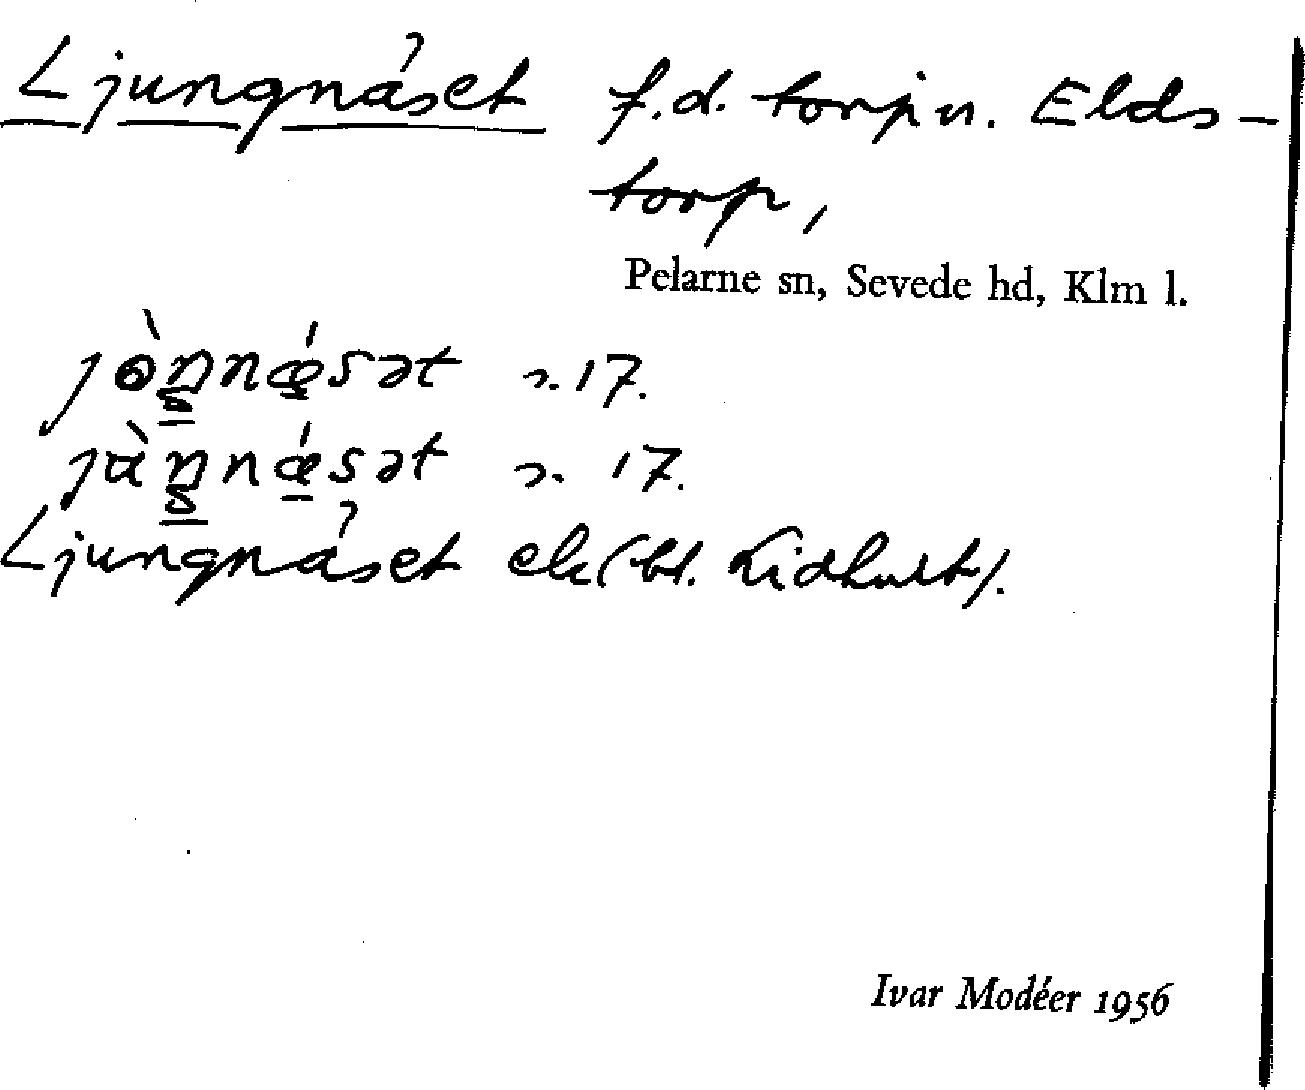 Ljungnäset f.d. torp u. Elds-
torp,
Pelarne sn, Sevede hd, Klm l.
jòŋnǽsət s. 17.
jàŋnǽsət s. 17.
Ljungnäset ek (bl. Lidhult).
Ivar Modéer 1956